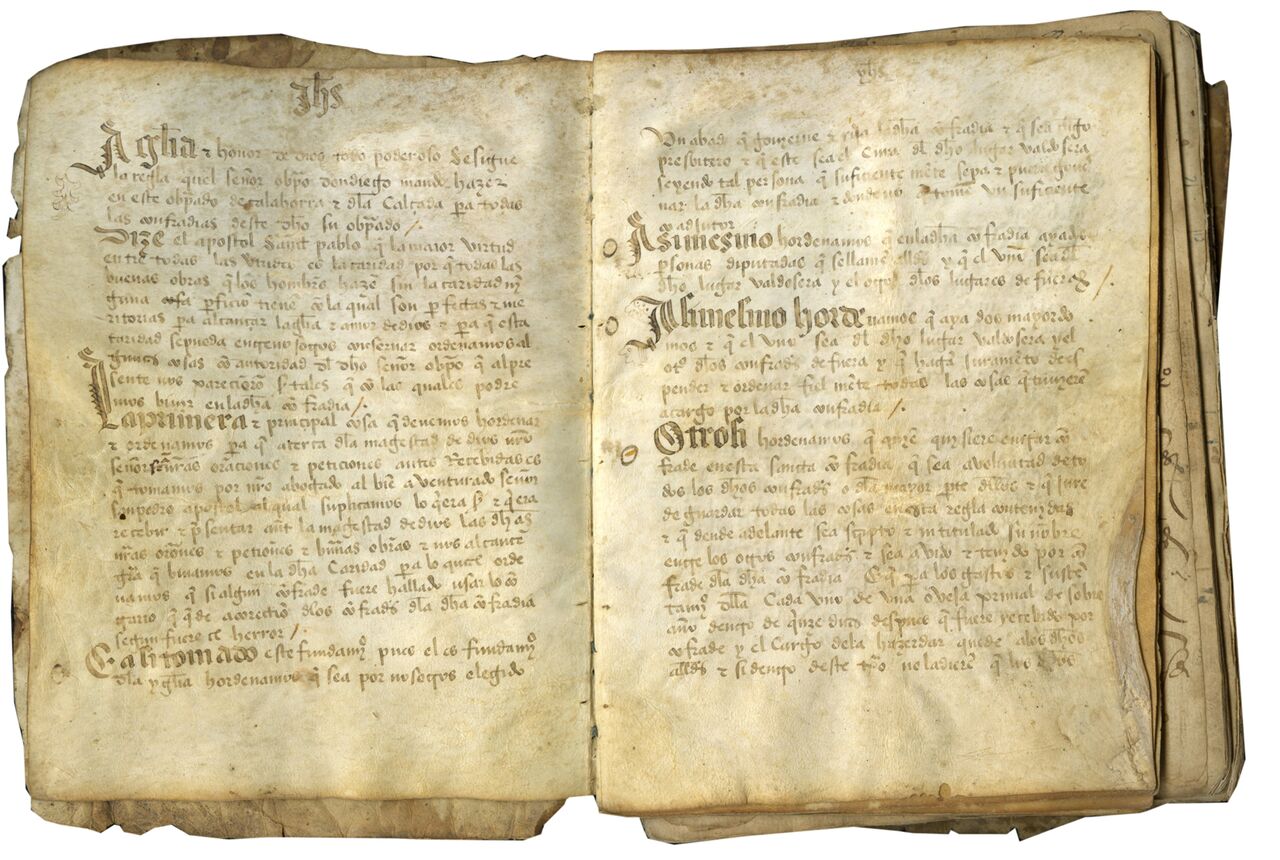 Jhs
A glia & honor de dios todo poderoso Se sigue
la regla quel señor obpo don diego mando hazer
en este obpado de calahorra & dla Calçada pa todas
las confradias deste dho su obpado /.
Dize el apostol Sant pablo q la maior virtud
entre todas las virtudes es la caridad por q todas las
buenas obras q los hombres haze sin la caridad nin
guna cosa pficio tiene con la qual son perfectas & me
ritorias pa alcançar la glia & amor de dios & pa q esta
caridad se pueda en e nosotros conservar ordenamos al
gunas cosas con autoridad dl dho señor obpo q al pre
sente nos parecieron s tales q con las quales podre
mos bivir en la dha confradia /.
La primera & principal cosa q devemos hordenar
& ordenamos pa q acerca dla magestad de dios nro
señor nras oraciones & peticiones antes Recebidas es
q tomamos por nro abogado al bie aventurado señor
san pedro apostol al qual suplicamos lo qera & qera
recebir & psentar ant la magestad de dios las dhas
nras orones & petiones & buenas obras & nos alcance
gra q bivamos en la dha Caridad pa lo qual orde
namos q si algun confrade fuere hallado usar lo con
trario q qde a correction dlos confrads dla dha confradia
segun fuere el herror /.
E asi tomado este fundamo pues el es fundamo
dla yglia hordenamos q sea por nosotros elegido
yhs
Un abad q governe & rija la dha confradia & q sea clerigo
presbitero & q este sea el Cura dl dho lugar valdosera
seyendo tal persona q suficiente mete sepa & pueda gover
nar la dha confradia & donde no q tome un suficiente
coadjutor
Asimesmo hordenamos q en la dha confradia aya dos
personas diputadas q se llamen allds y q el uno sea dl
dho lugar valdosera y el otro dlos lugares de fuera /.
Asimesmo hordenamos q aya dos mayordo
mos & q el uno sea dl dho lugar valdosera y el
otro dlos confrads de fuera y q hagan juramento de es
pender & ordenar fiel mete todas las cosas q tuvieren
a cargo por la dha confradia /.
Otrosi hordenamos q quien quisiere entrar con
frade en esta sancta confradia q sea a voluntad de to
dos los dhos confrads o dla mayor pte dllos & q jure
de guardar todas las cosas en esta regla contenidas
& q dende adelante sea scripto & intitulado su nobre
entre los otros confrads & sea avido & tenido por con
frade dla dha confradia E q pa los gastos & susten
tamo dlla Cada uno de una oveja primal de sobre
año dentro de qnze dias despues q fuere recebido por
confrade y el Cargo de la hazer dar quede a los dhos
allds & si dentro deste tpo no la diere q los dhos